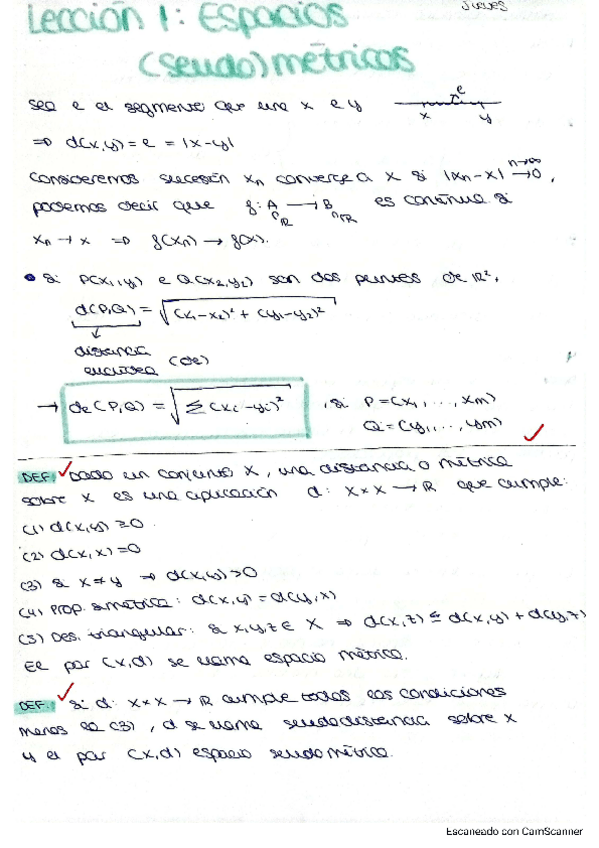 Jueves
Lección 1: Espacios
(seudo)métricos
sea e el segmento que une x e y
e
x y
⇒ d(x,y) = e = |x-y|
Consideremos sucesión xn converge a x si |xn-x| →0, n→∞
podemos decir que f: A → B es continua si
∩ℝ ∩ℝ
xn → x ⇒ f(xn) → f(x).
• Si P(x1,y1) e Q(x2,y2) son dos puntos de ℝ²,
d(P,Q) = √(x1-x2)² + (y1-y2)²
distancia
euclídea (de)
→ de(P,Q) = √Σ(xi-yi)² , si P=(x1,...,xm)
Q=(y1,...,ym)
DEF: Dado un conjunto X, una distancia o métrica
sobre X es una aplicación d: X×X → ℝ que cumple:
(1) d(x,y) ≥0
(2) d(x,x)=0
(3) Si x≠y ⇒ d(x,y)>0
(4) Prop. simétrica: d(x,y)=d(y,x)
(5) Des. triangular: Si x,y,z ∈ X ⇒ d(x,z) ≤ d(x,y) + d(y,z)
El par (X,d) se llama espacio métrico.
DEF: Si d: X×X → ℝ cumple todas las condiciones
menos la (3), d se llama seudodistancia sobre X
y el par (X,d) espacio seudométrico.
Escaneado con CamScanner